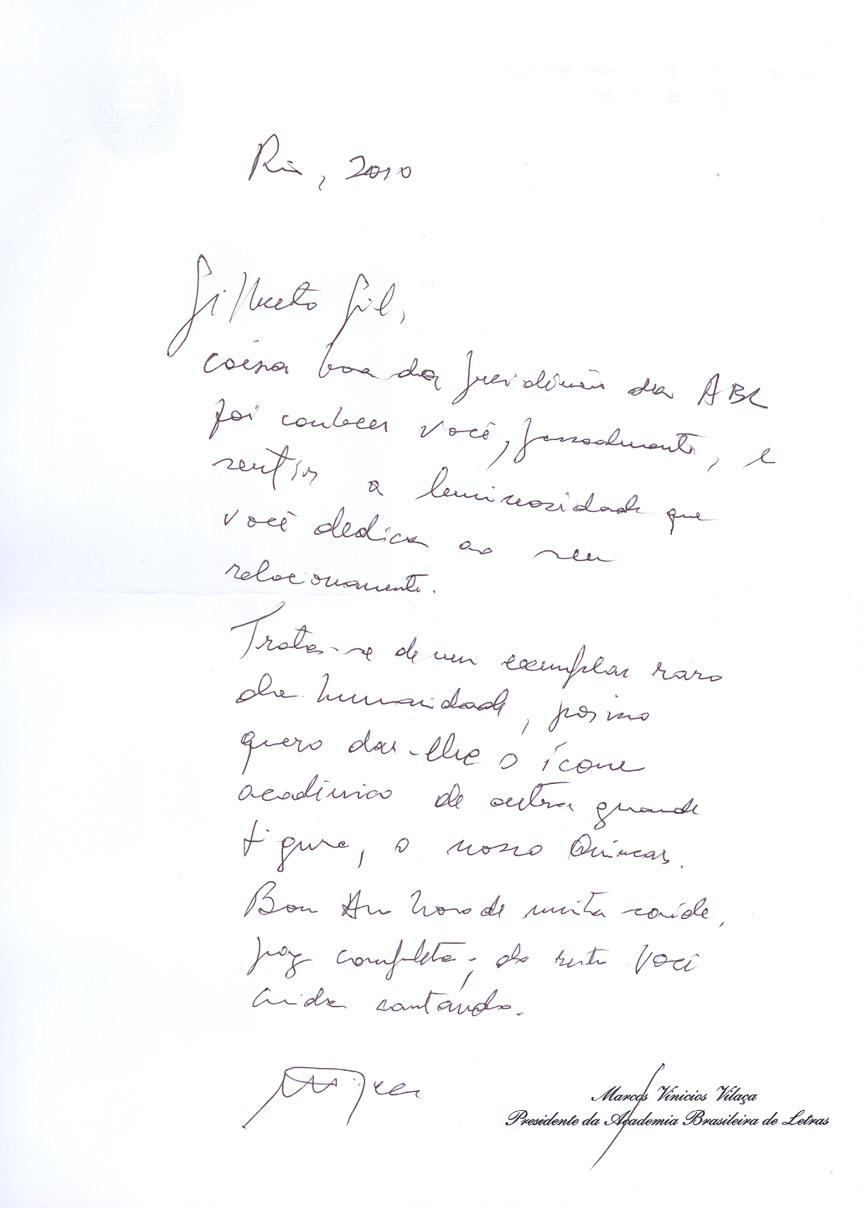 Rio, 2010
Gilberto Gil,
coisa boa da presidência da ABL
foi conhecer você, pessoalmente, e
sentir a luminosidade que
você dedica ao seu
relacionamento.
Trata-se de um exemplar raro
da humanidade, por isso
quero dar-lhe o ícone
acadêmico de outra grande
figura, o nosso Quincas.
Bom Ano Novo de muita saúde,
paz completa; do resto você
cuida cantando.
Marcos Vinicios Vilaça
Presidente da Academia Brasileira de Letras